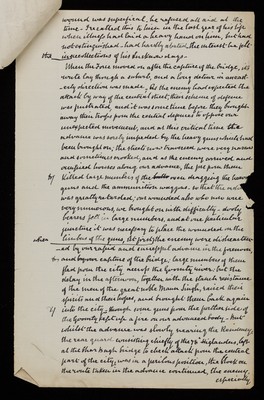 wound was superficial, he refused all aid at the
time. I recalled this to him in the last year of his life
when illness had laid a heavy hand on him, but had
not extinguished - had hardly abated, the interest he felt
in recollections of his Lucknow days -
When the Force moved on, after the capture of the bridge, its
route lay through a suburb, and a long detour in an east-
erly direction was made; for the enemy had expected the
attack by way of the central street, their scheme of defence
was frustrated and it was some time before they brought
away their troops from the central defences to oppose our
unexpected movement, and at this critical time the
advance was sorely impeded by the heavy guns which had
been brought on; the streets now traversed were very narrow
and sometimes crooked, and as the enemy arrived and
occupied houses along our advance, the fire from them
killed large numbers of the bullocks dragging the heavy
guns and the ammunition waggons, so that the
was greatly retarded; our wounded also who now were
very numerous, we brought on with difficulty - dooly
bearers fell in large numbers, and at one particular
juncture it was necessary to place the wounded on the
limbers of the guns. At first the enemy were disheartened
by our rapid and successful advance in the forenoon
and by our capture of the bridge; large numbers of them
fled from the city across the Goomty river; but the
delay in the afternoon, together with the staunch resistance
of the men of the great noble Maun Singh, raised their
spirits and their hopes, and brought them back again
into the city, though some guns from the further side of
the Goomty kept up a fire on our advanced body. But
whilst the advance was slowly nearing the Residency,
the rear guard consisting chiefly of the 78th Highlanders, left
at the Char bagh bridge to check attack from the central
part of the city, was in a perilous position, the block on
the route taken in the advance continued, the enemy,
especially